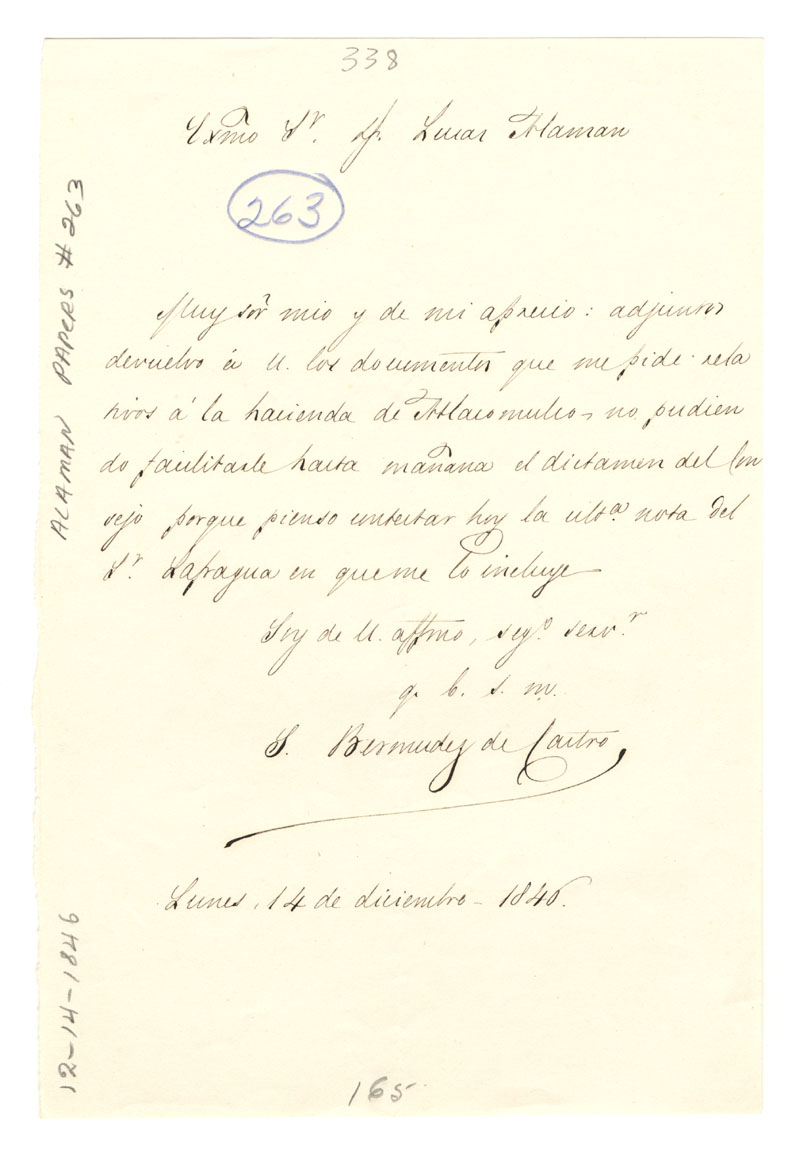 338
Exmo Sr. D. Lucas Alaman
263
Muy Sôr mio y de mi aprecio: adjuntos
devuelvo á U. los documentos que me pide rela
tivos á la hacienda de Atlacomulco, no pudien
do facilitarle hasta mañana el dictamen del Con
sejo porque pienso contestar hoy la ultª. nota del
Sr. Lafragua en que me lo incluye
Soy de U. affmo, segº. servr.
q. b. s. m.
S. Bermudez de Castro
Lunes, 14 de diciembre - 1846.
165
ALAMAN PAPERS # 263
12-14-1846